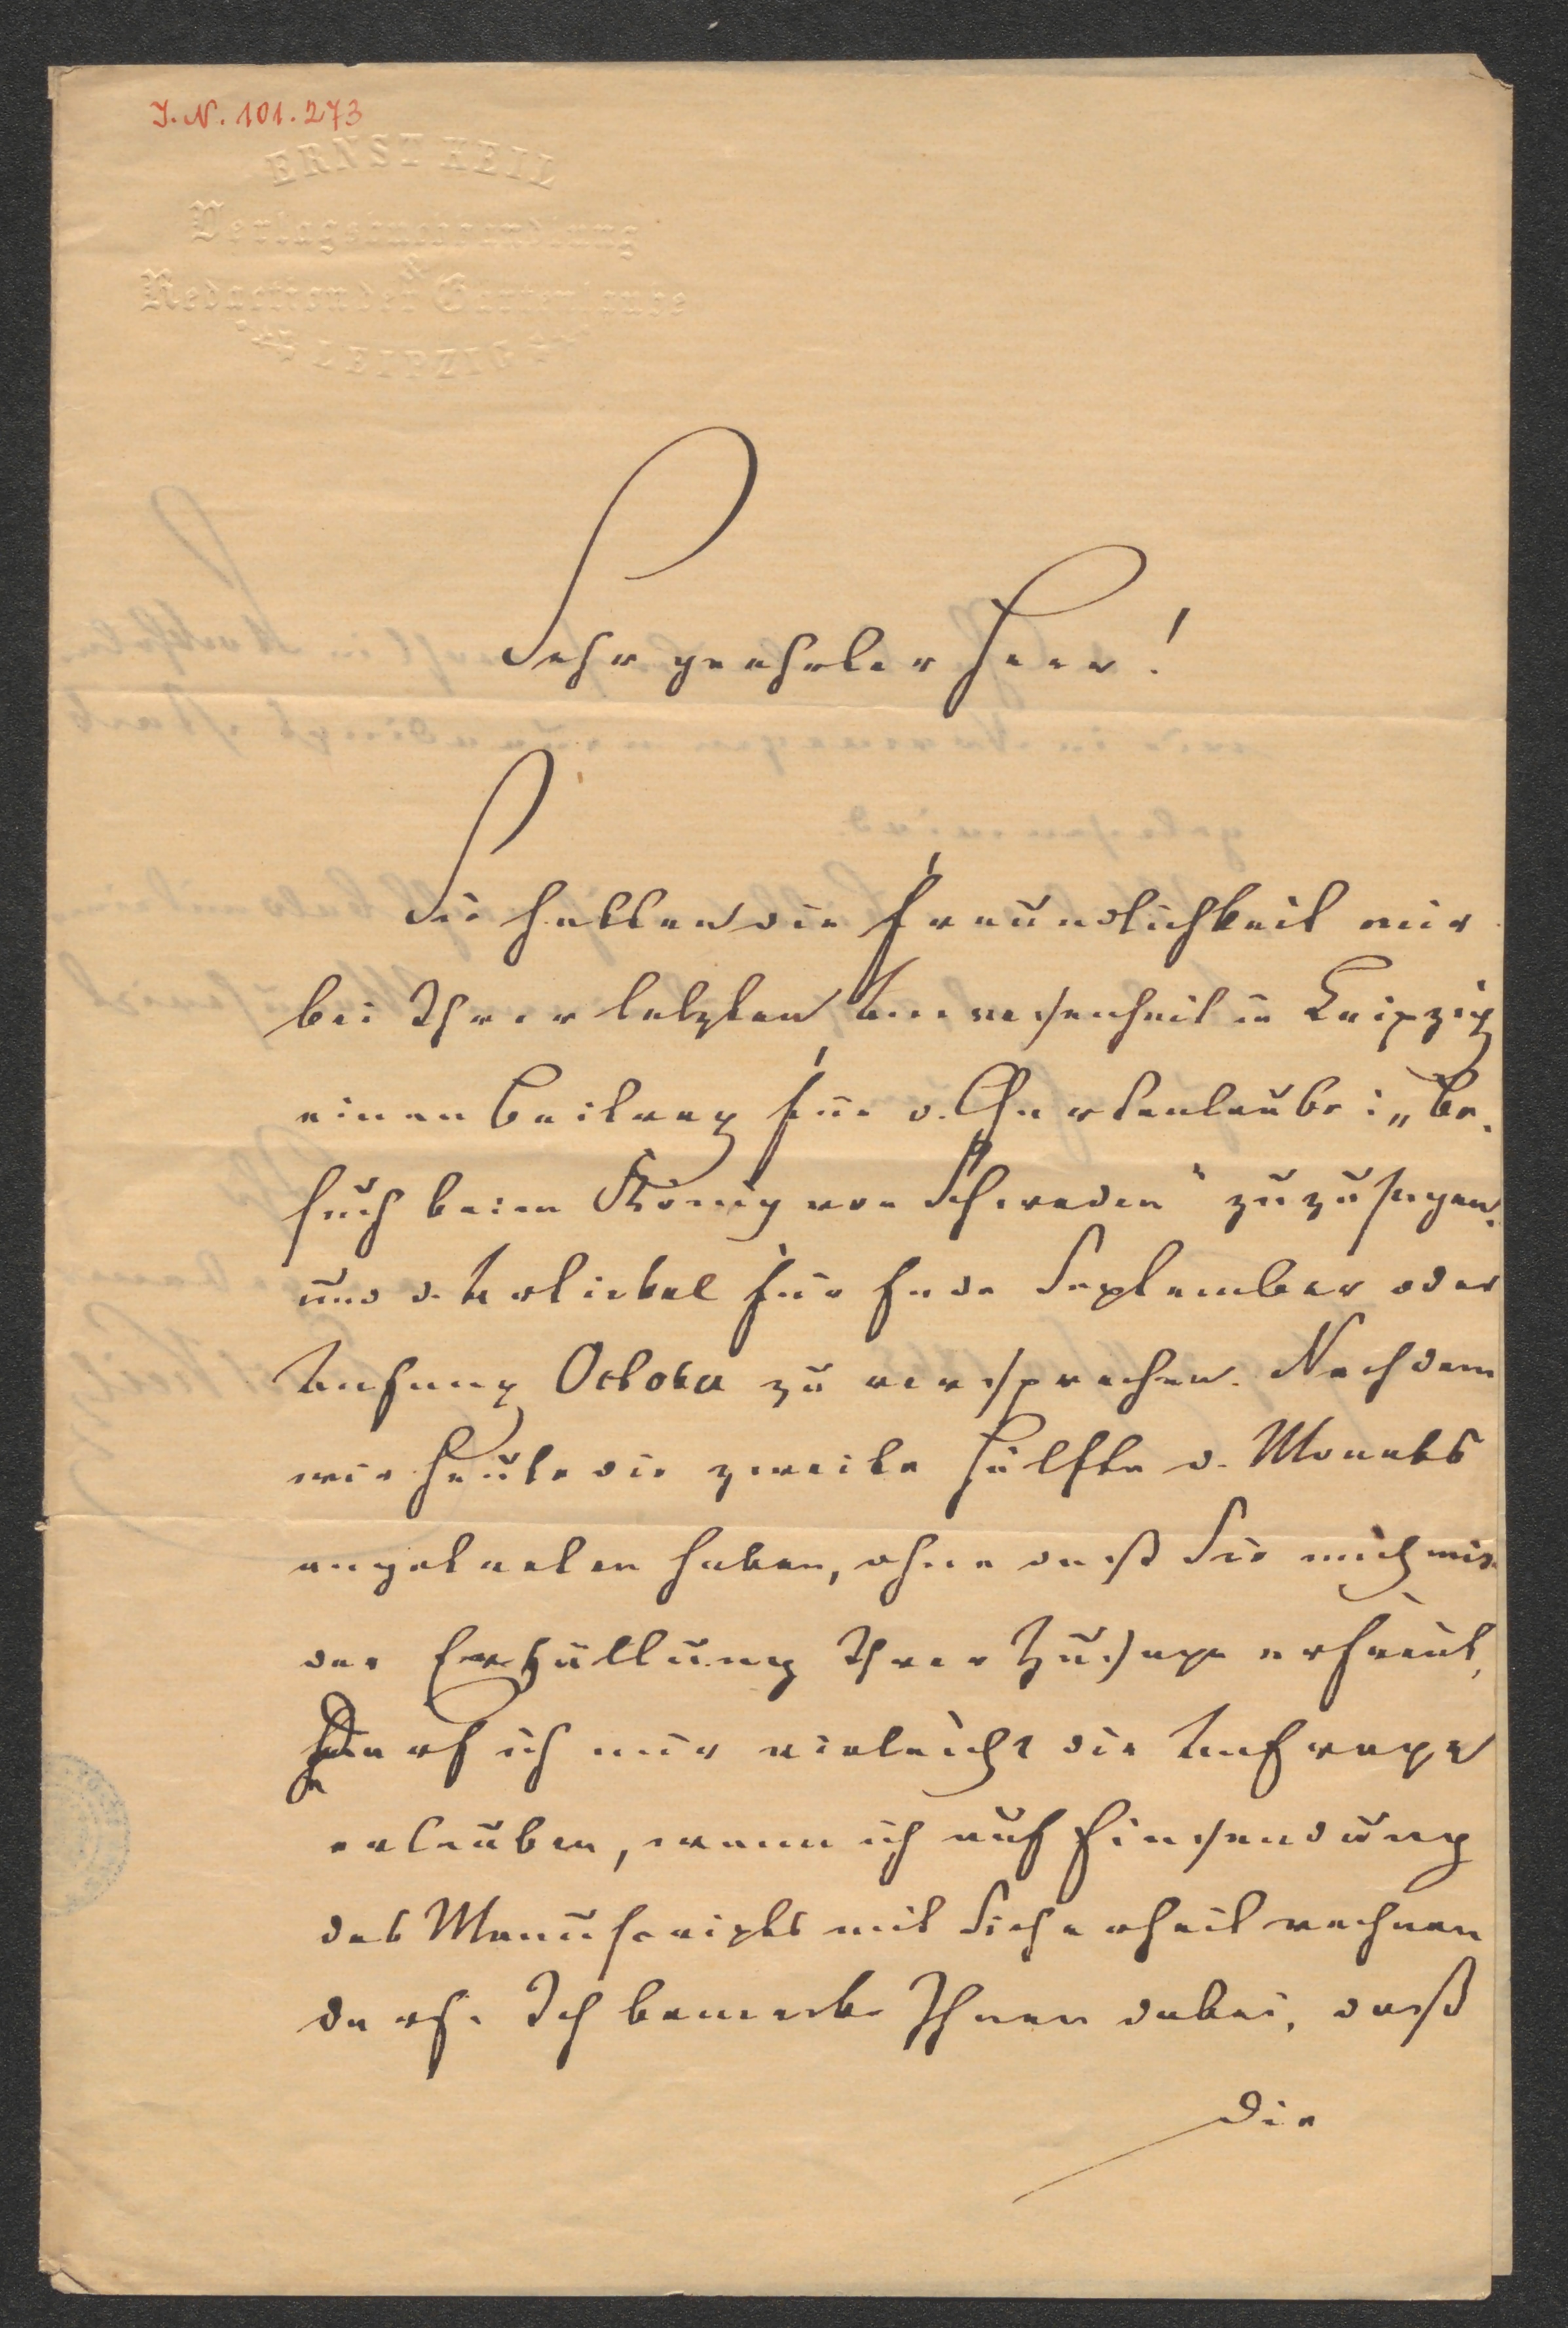 J. N. 101.273
ERNST KEIL
Verlagsbuchhandlung
&
Redaction der Gartenlaube
LEIPZIG
Sehr geehrter Herr!
Sie hatten die Freundlichkeit mir
bei Ihrer letzten Anwesenheit in Leipzig
einen Beitrag für d. Gartenlaube: „Be-
such beim König von Schweden" zuzusagen
und d. Artickel für Ende September oder
Anfang October zu versprechen. Nachdem
wir heute die zweite Hälfte d. Monats
angetreten haben, ohne daß Sie mich mit
der Erfüllung Ihrer Zusage erfreut,
Darf ich mir vieleicht die Anfrage
erlauben, wann ich auf Einsendung
des Manuscripts mit Sicherheit rechnen
darf. Ich bemerke Ihnen dabei, daß
die